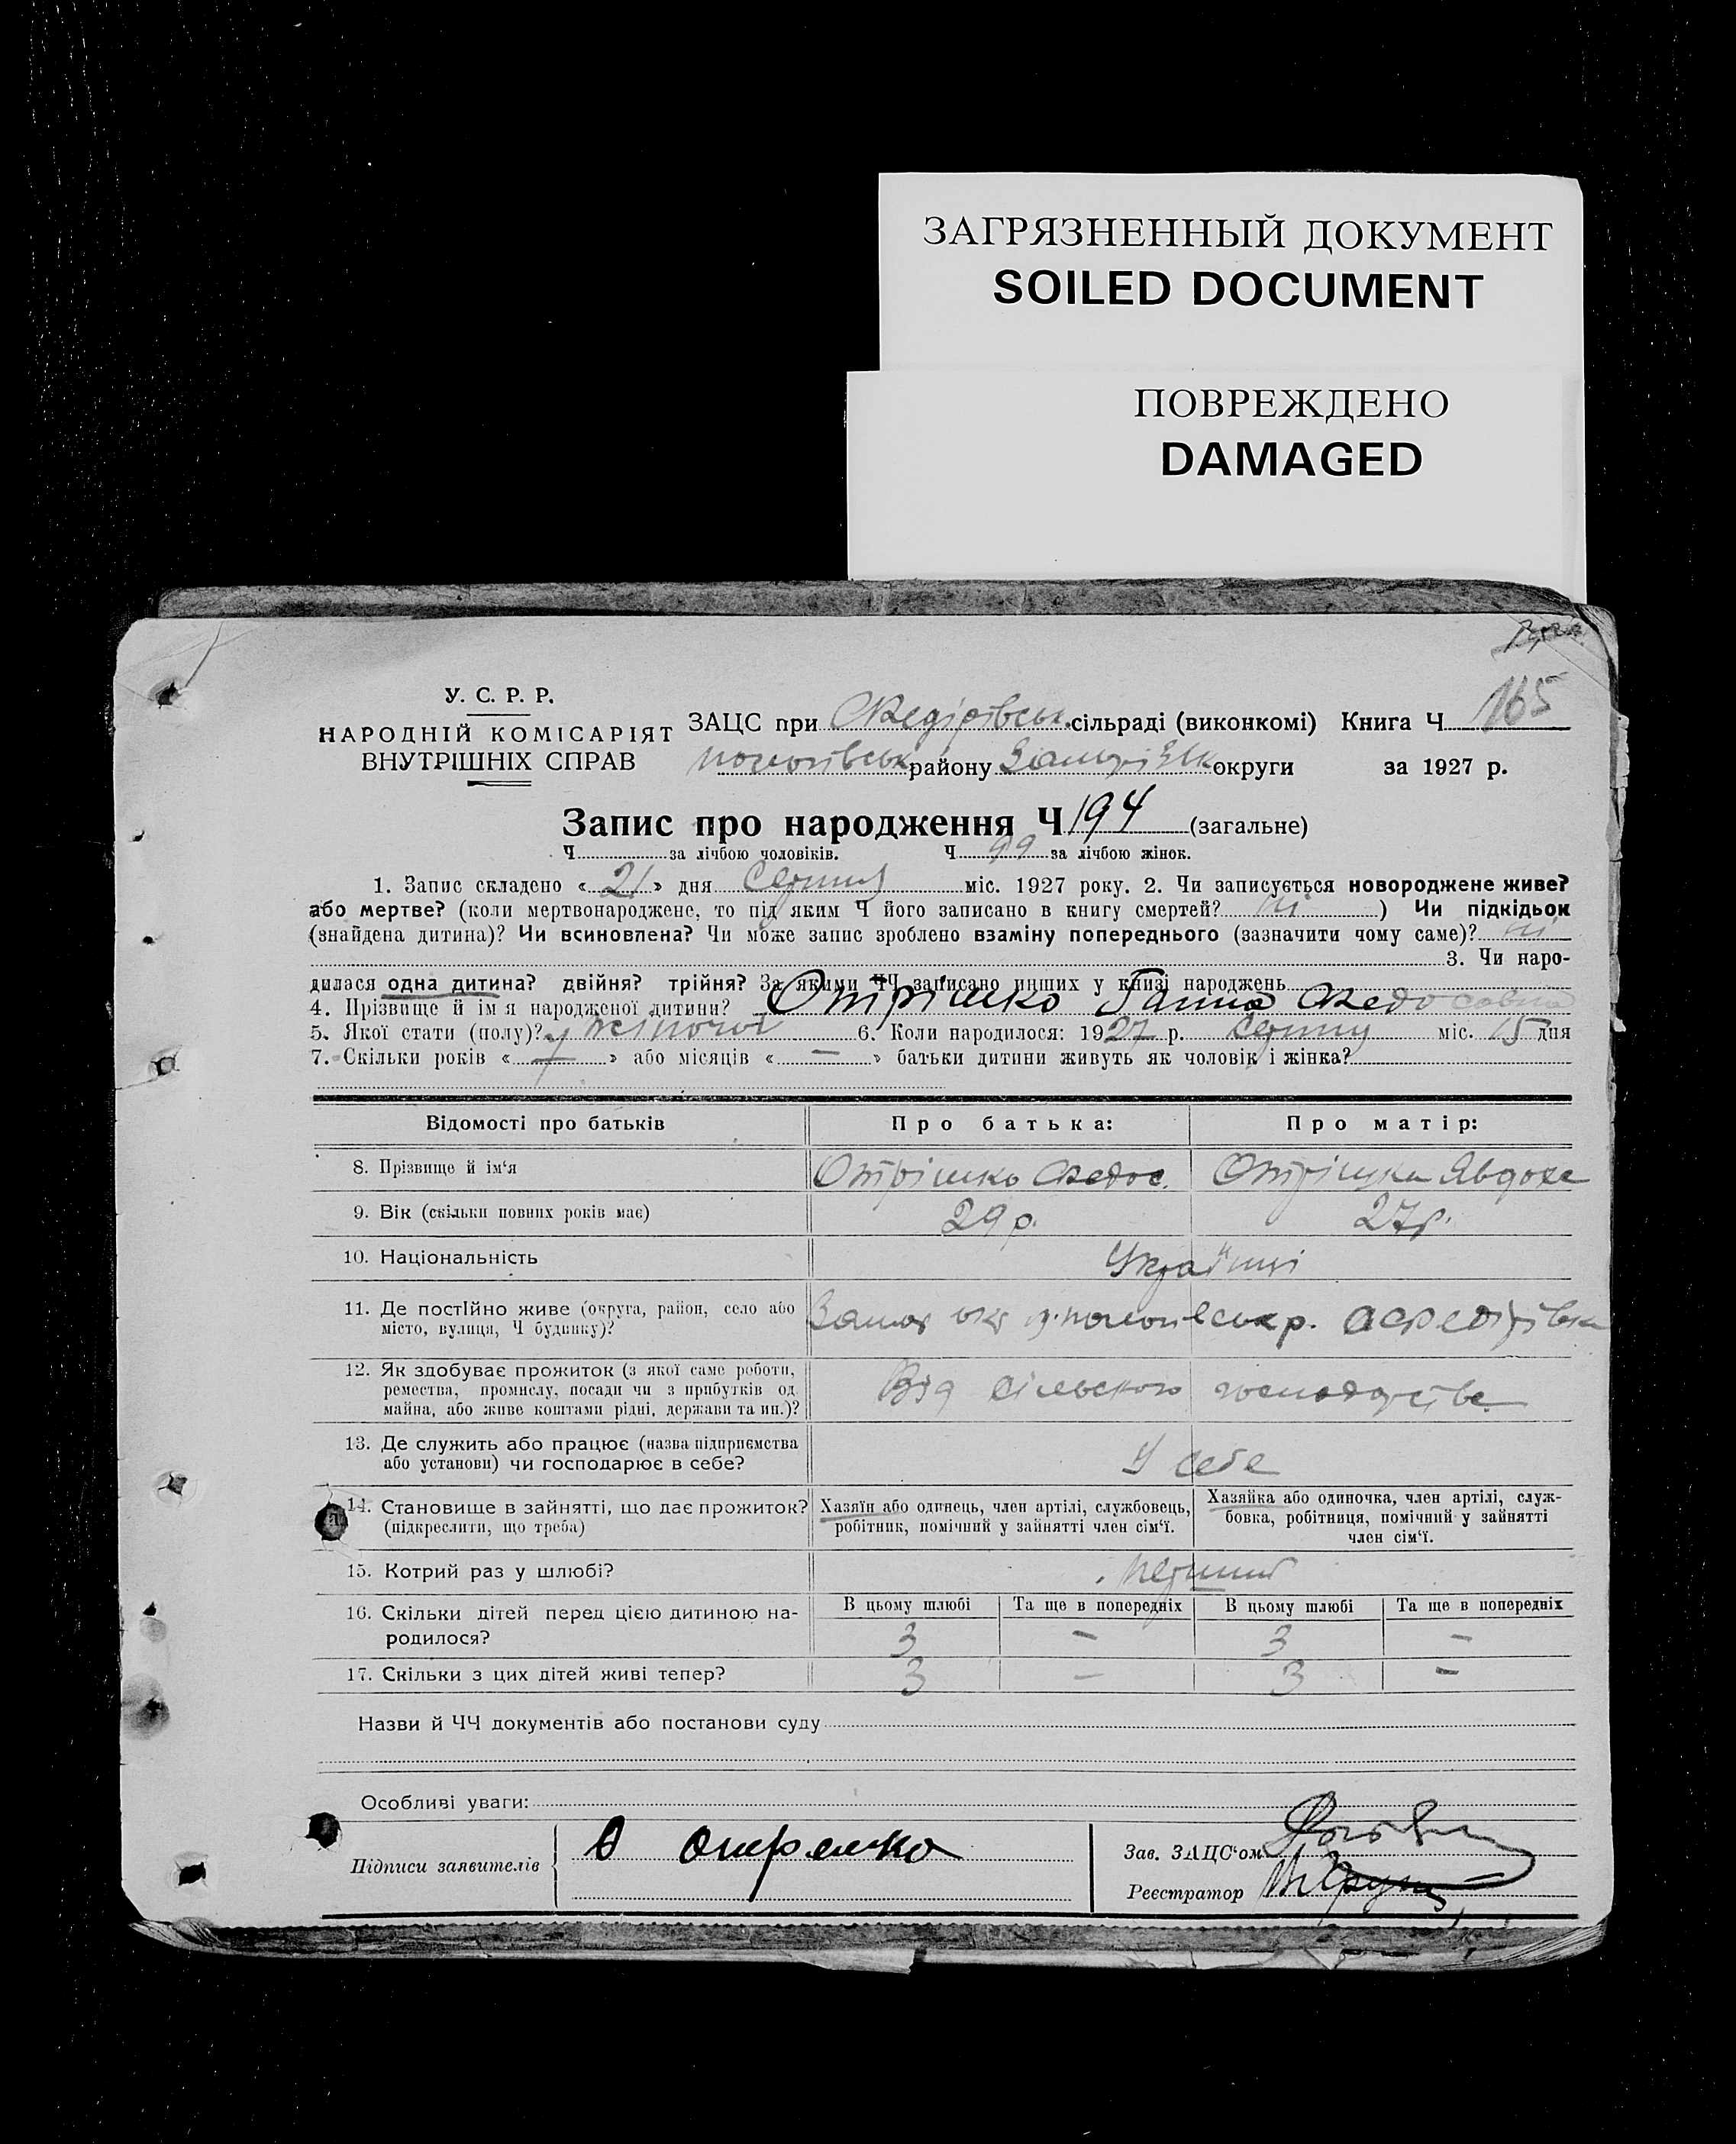 ЗАГРЯЗНЕННЫЙ ДОКУМЕНТ
SOILED DOCUMENT
ПОВРЕЖДЕНО
DAMAGED
165
У. С. Р. Р.
НАРОДНІЙ КОМІСАРІЯТ
ВНУТРІШНІХ СПРАВ
ЗАЦС при Федірівськ. сільраді (виконкомі) Книга Ч.
пологівськ району Запоріжк округи за 1927 р.
Запис про народження Ч 194 (загальне)
Ч. за лічбою чоловіків. Ч. 99 за лічбою жінок.
1. Запис складено « 21 » дня Серпня міс. 1927 року. 2. Чи записується новороджене живе?
або мертве? (коли мертвонароджене, то під яким Ч його записано в книгу смертей? ні ) Чи підкідьок
(знайдена дитина)? Чи всиновлена? Чи може запис зроблено взаміну попереднього (зазначити чому саме)? ні
3. Чи наро-
дилася одна дитина? двійня? трійня? За якими ЧЧ записано инших у книзі народжень
4. Прізвище й ім'я народженої дитини? Отрішко Ганна Федосовна
5. Якої стати (полу)? жіночої 6. Коли народилося: 1927 р. Серпня міс. 15 дня
7. Скільки років « 7 » або місяців « — » батьки дитини живуть як чоловік і жінка?
Відомості про батьків Про батька: Про матір:
8. Прізвище й ім'я Отрішко Федос. Отрішка Явдоха
9. Вік (скільки повних років має) 29 р. 27 р.
10. Національність Українці
11. Де постійно живе (округа, район, село або
місто, вулиця, Ч будинку)? Запор окр пологівськ р. с Федірівка
12. Як здобуває прожиток (з якої саме роботи,
ремества, промислу, посади чи з прибутків од
майна, або живе коштами рідні, держави та ин.)? Від сільского господарства
13. Де служить або працює (назва підприємства
або установи) чи господарює в себе? У себе
14. Становище в зайнятті, що дає прожиток?
(підкреслити, що треба)
Хазяїн або одинець, член артілі, службовець,
робітник, помічний у зайнятті член сім'ї.
Хазяйка або одиночка, член артілі, служ-
бовка, робітниця, помічний у зайнятті
член сім'ї.
15. Котрий раз у шлюбі? перший
16. Скільки дітей перед цією дитиною на-
родилося?
В цьому шлюбі Та ще в попередніх В цьому шлюбі Та ще в попередніх
3 – 3 –
17. Скільки з цих дітей живі тепер? 3 – 3 –
Назви й ЧЧ документів або постанови суду
Особливі уваги:
Підписи заявителів
Зав. ЗАЦС'ом
Реєстратор